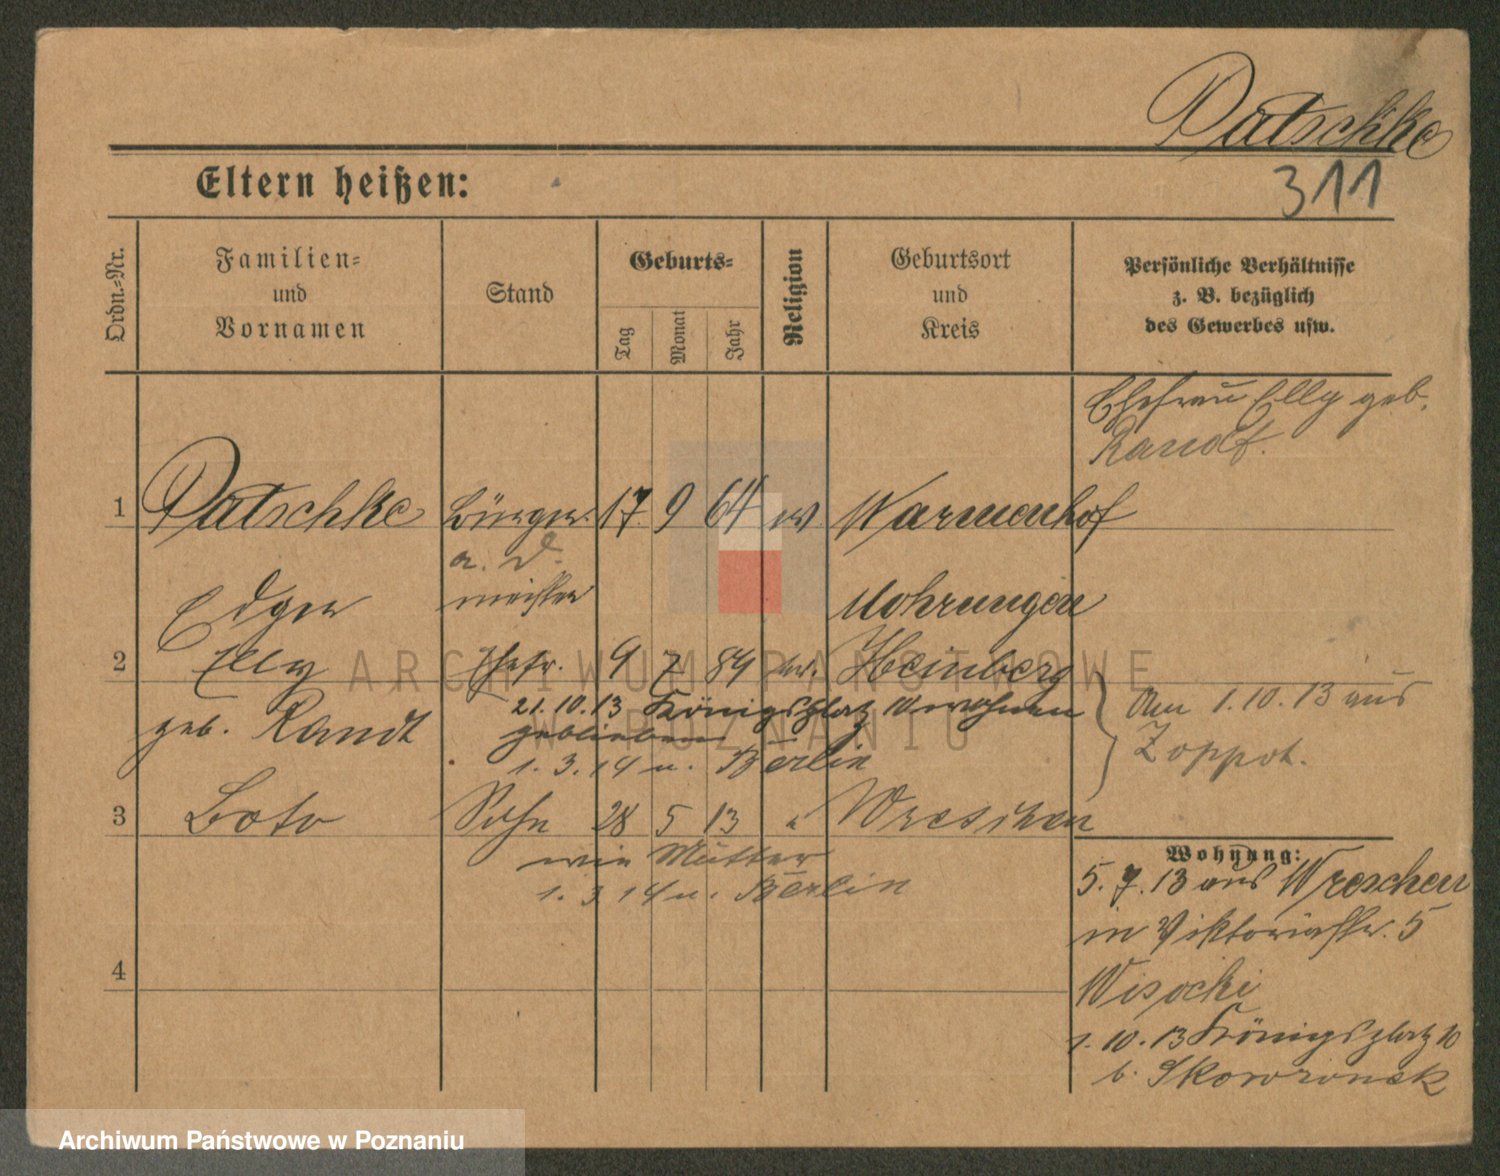 Patschke
311
Eltern heißen:
Ordn.-Nr.
Familien-
und
Vornamen
Stand
Geburts-
Tag
Monat
Jahr
Religion
Geburtsort
und
Kreis
Persönliche Verhältnisse
z. B. bezüglich
des Gewerbes usw.
Ehefrau Elly geb.
Randt.
1 Patschke Bürger- 17. 9 64 ev Warmenhof
a. D.
meister
Edgar Mohrungen
2 Elly Ehefr. 9 7 84 ev. Heinberg
geb. Randt
21.10.13 Königsplatz 10 wohnen
geblieben
1.3.14 n. Berlin
Am 1.10.13 aus
Zoppot.
3 Boto Sohn 28 5 13 " Wreschen
wie Mutter
1.3.14 n. Berlin
4
Wohnung:
5.7.13 aus Wreschen
in Viktoriastr. 5
Wisocki
1.10.13 Königsplatz 10
b. Skowronek
ARCHIWUM PAŃSTWOWE
W POZNANIU
Archiwum Państwowe w Poznaniu